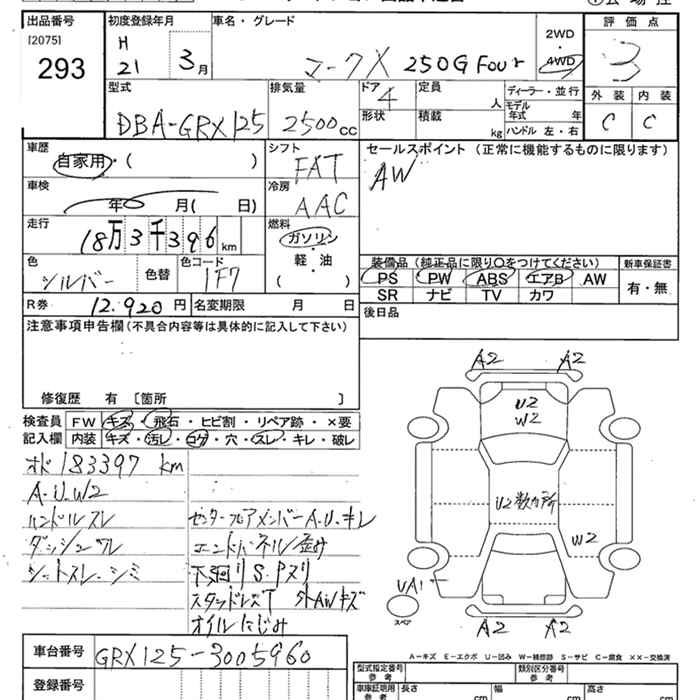 出品番号 初度登録年月 車名・グレード 評価点
[2075] H 2WD
293 21 3月 マークX 250G Four 4WD 3
型式 排気量 ドア 定員 ディーラー・並行 外装 内装
4 人 モデル年式 年
DBA-GRX125 2500cc 形状 積載 kg ハンドル 左・右 C C
車歴 シフト セールスポイント (正常に機能するものに限ります)
自家用・( ) FAT AW
車検 冷房
年 月( 日) AAC
走行 燃料
18万3千396km ガソリン
色 色替 色コード 軽・油 装備品 (純正品に限り○をつけてください) 新車保証書
シルバー 1F7 ( ) PS PW ABS エアB AW 有・無
R券 12,920円 名変期限 月 日 SR ナビ TV カワ
注意事項申告欄(不具合内容等は具体的に記入して下さい) 後日品
修復歴 有 〔箇所 〕
検査員 FW キズ・飛石・ヒビ割・リペア跡・×要
記入欄 内装 キズ・汚レ・コゲ・穴・スレ・キレ・破レ
オド183397 km
A.U.W2
ハンドルスレ センターフロアメンバーA.U.キレ
ダッシュワレ エンドパネル歪み
シートスレ・シミ 下廻りS.Pヌリ
スタッドレスT 外AWキズ
オイルにじみ
A2 A2
U2
W2
U2数カ所
W2
UA1
スペア
A2 A2
A-キズ E-エクボ U-凹み W-補修跡 S-サビ C-腐食 ××-交換済
車台番号 GRX125-3005960 型式指定番号 参考 類別区分番号 参考
登録番号 車庫証明用 参考 長さ cm 幅 cm 高さ cm